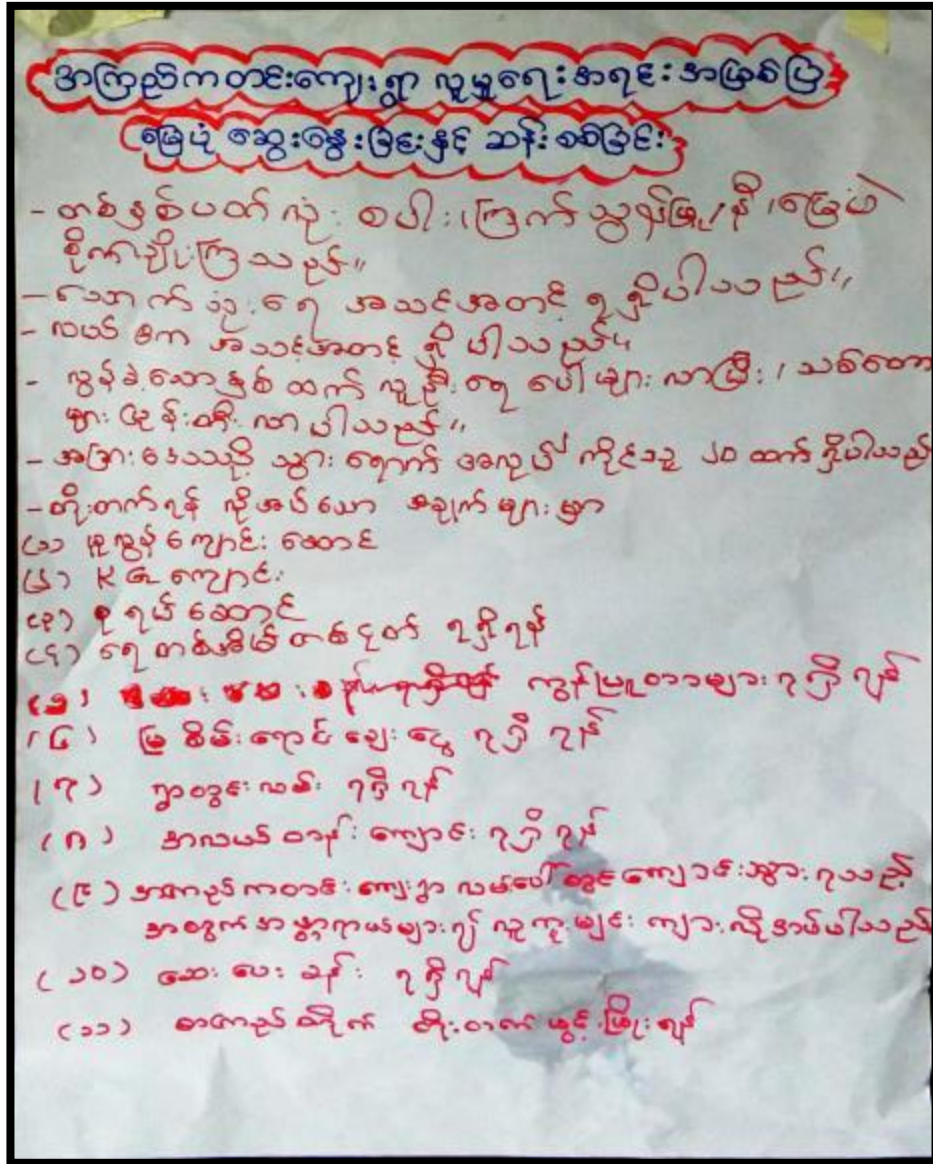 အကြည်ကတင်းကျေးရွာ လူမှုရေးအရင်းအမြစ်ပြ
မြေပုံ ဆွေးနွေးခြင်းနှင့် ဆန်းစစ်ခြင်း
- တစ်နှစ်ပတ်လုံး စပါး၊ ကြက်သွန်ဖြူ/နီ ၊ မြေပဲ
စိုက်ပျိုးကြသည်။
- သောက်သုံးရေ အသင့်အတင့် ရရှိပါသည်။
- လယ်မြေ အသင့်အတင့် ရှိပါသည်။
- လွန်ခဲ့သောနှစ်ထက် လူဦးရေ ပေါများလာပြီး ၊ သစ်တော
များ ပြုန်းတီးလာပါသည်။
- အခြားဒေသသို့ သွားရောက် အလုပ်လုပ်ကိုင်သူ ၂၀ ထက် ရှိပါသည်
- တိုးတက်ရန် လိုအပ်သော အချက်များမှာ
(၁) မူလွန်ကျောင်းဆောင်
(၂) KG ကျောင်း
(၃) စုရပ်ဆောင်
(၄) ရေတစ်အိမ်တစ်ငုတ် ရရှိရန်
(၅) ကွန်မြူတာများ ရရှိရန်
(၆) မြစိမ်းရောင်ချေးငွေ ရရှိရန်
(၇) ရွာတွင်းလမ်း ရရှိရန်
(၈) အလယ်တန်းကျောင်း ရရှိရန်
(၉) အကြည်ကတင်းကျေးရွာ လမ်းပေါ်တွင် ကျောင်းသွားရသည့်
အတွက် အန္တာရာယ်များ၍ လူကူးမျဉ်းကျားလိုအပ်ပါသည်
(၁၀) ဆေးပေးခန်း ရရှိရန်
(၁၁) စာကြည့်တိုက် တိုးတက်ဖွင့်ဖြိုးရန်